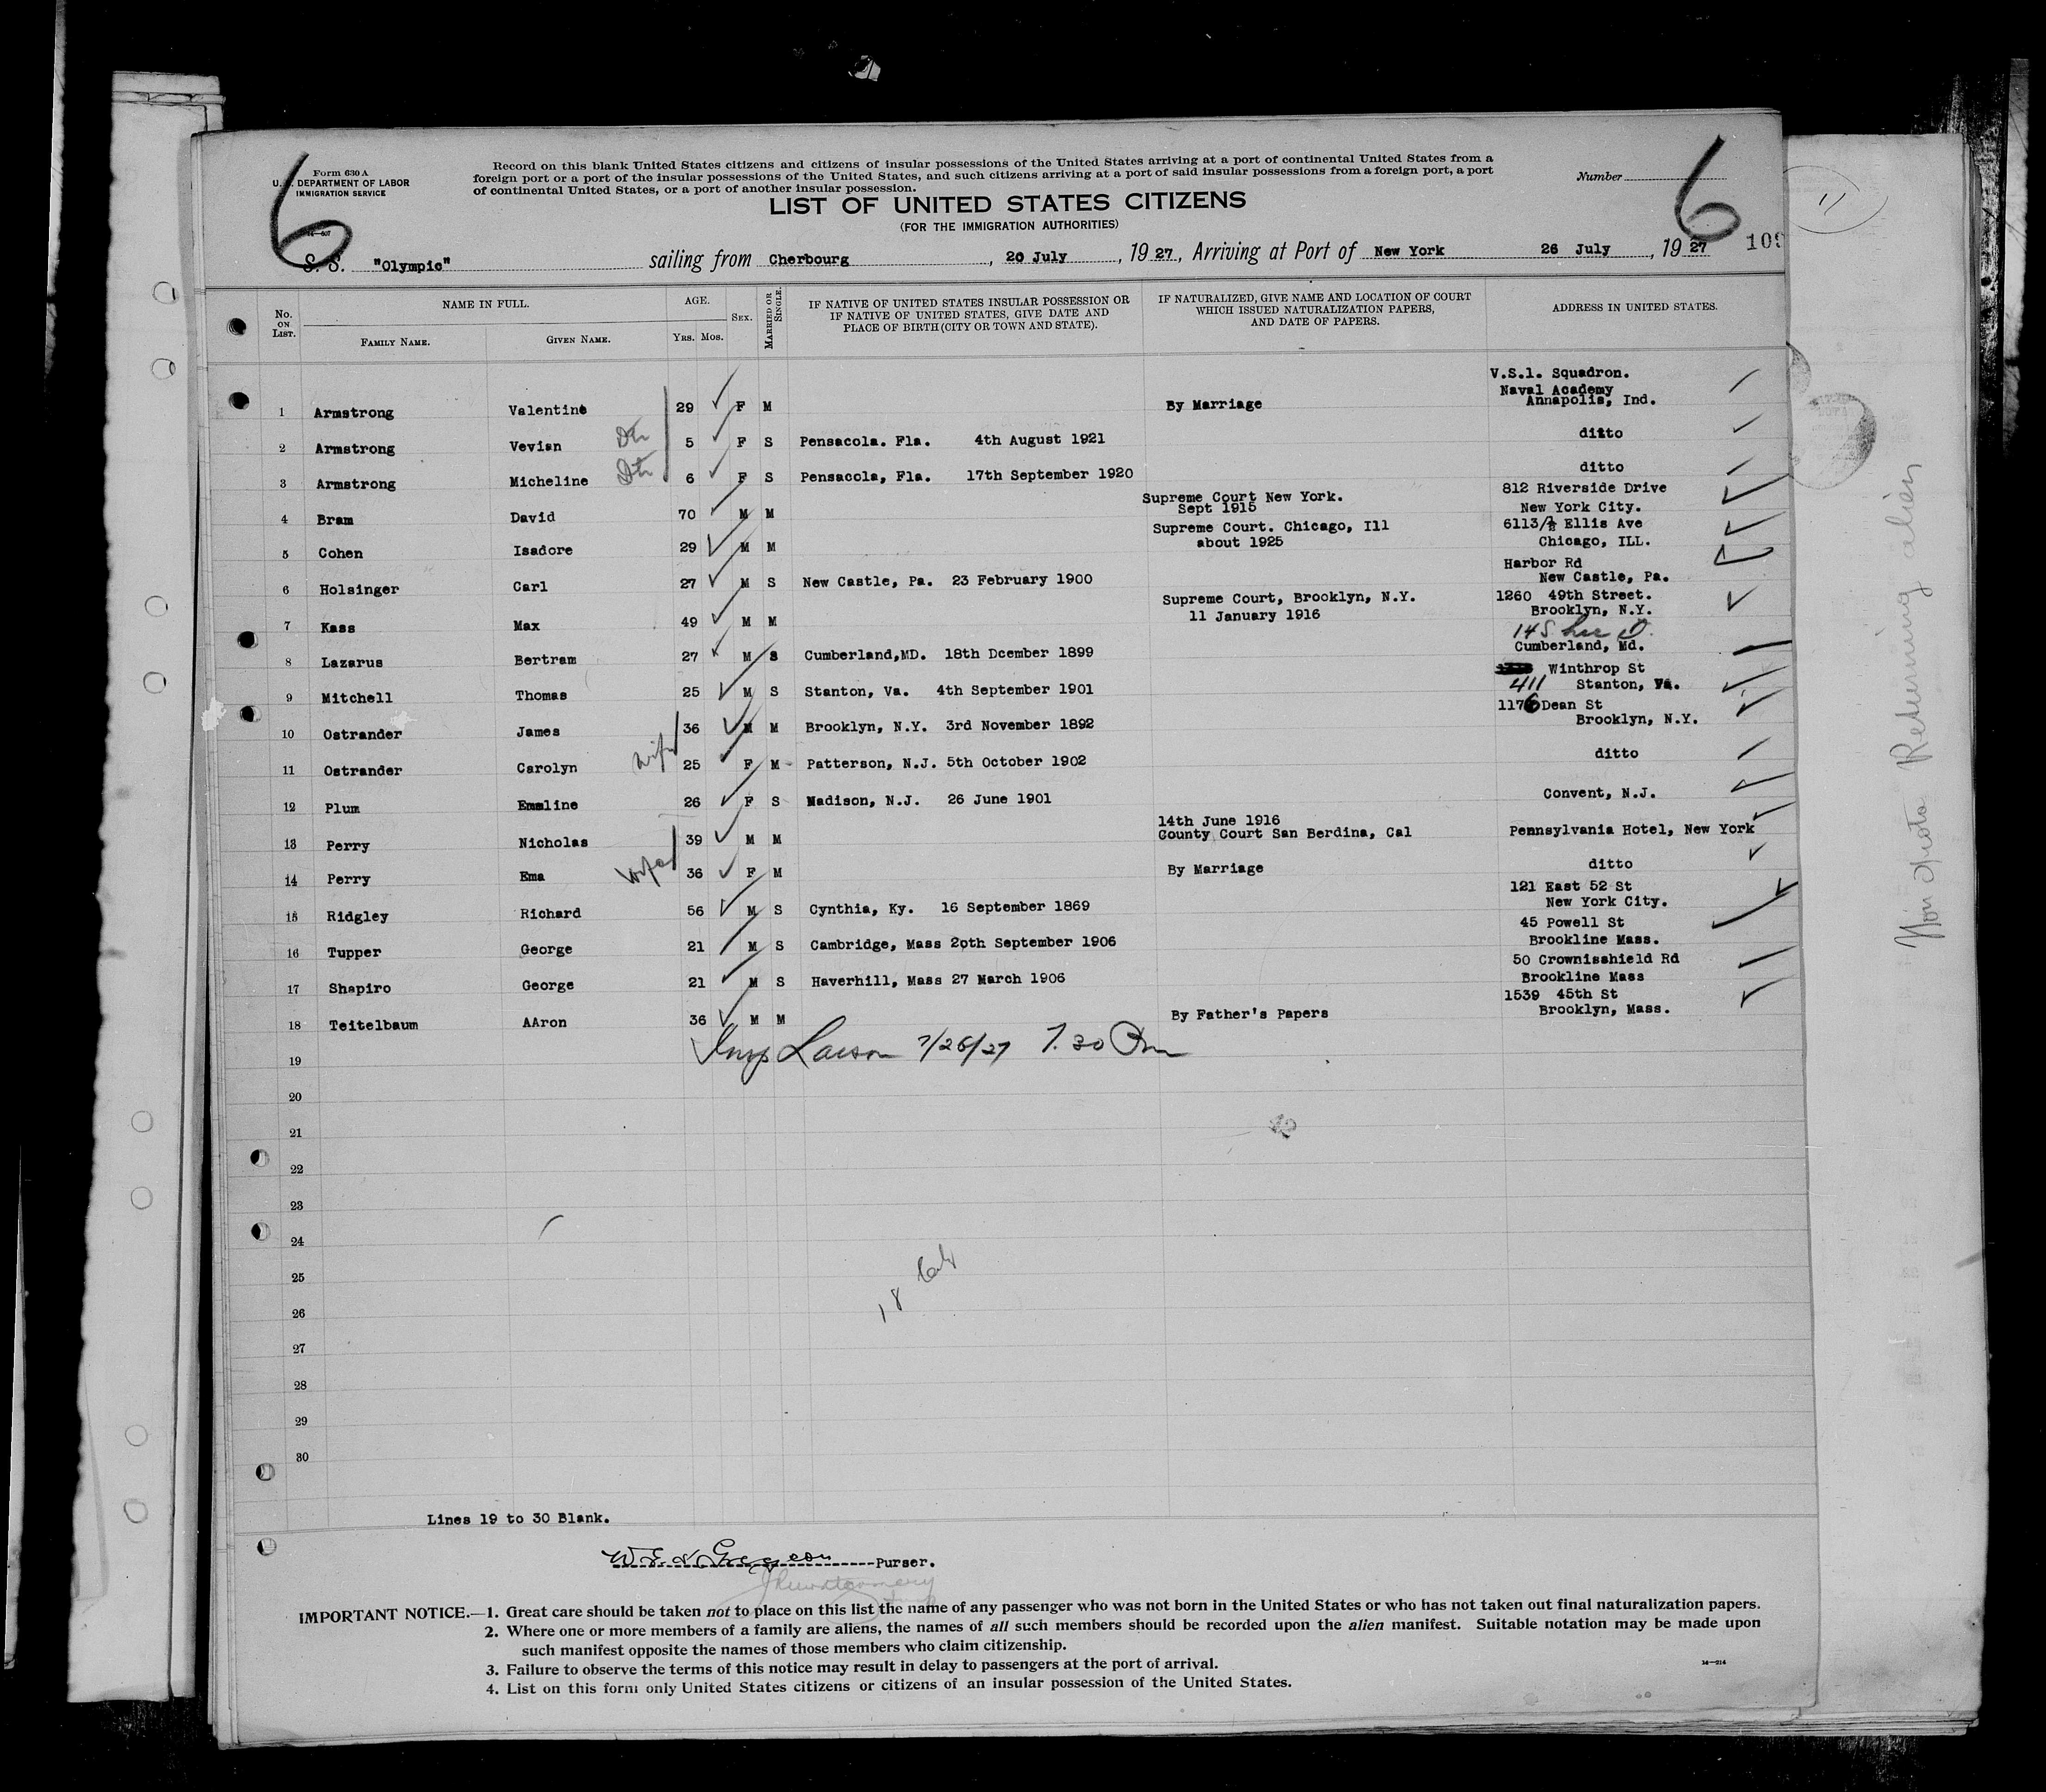 6
6
Form 630 A
U. S. DEPARTMENT OF LABOR
IMMIGRATION SERVICE
Record on this blank United States citizens and citizens of insular possessions of the United States arriving at a port of continental United States from a
foreign port or a port of the insular possessions of the United States, and such citizens arriving at a port of said insular possessions from a foreign port, a port
of continental United States, or a port of another insular possession.
Number
LIST OF UNITED STATES CITIZENS
(FOR THE IMMIGRATION AUTHORITIES)
S. S. "Olympic" sailing from Cherbourg, 20 July, 1927, Arriving at Port of New York 26 July, 1927
109
11
No. ON LIST. NAME IN FULL. AGE. SEX. MARRIED OR SINGLE. IF NATIVE OF UNITED STATES INSULAR POSSESSION OR IF NATIVE OF UNITED STATES, GIVE DATE AND PLACE OF BIRTH (CITY OR TOWN AND STATE). IF NATURALIZED, GIVE NAME AND LOCATION OF COURT WHICH ISSUED NATURALIZATION PAPERS, AND DATE OF PAPERS. ADDRESS IN UNITED STATES.
FAMILY NAME. GIVEN NAME. YRS. MOS.
1 Armstrong Valentine 29 F M By Marriage V.S.1. Squadron. Naval Academy Annapolis, Ind.
2 Armstrong Vevian Dtr 5 F S Pensacola. Fla. 4th August 1921 ditto
3 Armstrong Micheline Dtr 6 F S Pensacola, Fla. 17th September 1920 ditto
4 Bram David 70 M M Supreme Court New York. Sept 1915 812 Riverside Drive New York City.
5 Cohen Isadore 29 M M Supreme Court. Chicago, Ill about 1925 6113 Ellis Ave Chicago, ILL.
6 Holsinger Carl 27 M S New Castle, Pa. 23 February 1900 Harbor Rd New Castle, Pa.
7 Kass Max 49 M M Supreme Court, Brooklyn, N.Y. 11 January 1916 1260 49th Street. Brooklyn, N.Y.
8 Lazarus Bertram 27 M S Cumberland,MD. 18th Dcember 1899 14 S. Lee St. Cumberland, Md.
9 Mitchell Thomas 25 M S Stanton, Va. 4th September 1901 411 Winthrop St Stanton, Va.
10 Ostrander James 36 M M Brooklyn, N.Y. 3rd November 1892 1176 Dean St Brooklyn, N.Y.
11 Ostrander Carolyn wife 25 F M - Patterson, N.J. 5th October 1902 ditto
12 Plum Emeline 26 F S Madison, N.J. 26 June 1901 Convent, N.J.
13 Perry Nicholas 39 M M 14th June 1916 County Court San Berdina, Cal Pennsylvania Hotel, New York
14 Perry Ema wife 36 F M By Marriage ditto
15 Ridgley Richard 56 M S Cynthia, Ky. 16 September 1869 121 East 52 St New York City.
16 Tupper George 21 M S Cambridge, Mass 20th September 1906 45 Powell St Brookline Mass.
17 Shapiro George 21 M S Haverhill, Mass 27 March 1906 50 Crownisshield Rd Brookline Mass
18 Teitelbaum AAron 36 M M By Father's Papers 1539 45th St Brooklyn, Mass.
19 Insp Larson 7/26/27 7.30 Pm
20
21
22
23
24
25
26
27
28
29
30
18
Lines 19 to 30 Blank.
Purser.
IMPORTANT NOTICE.—1. Great care should be taken not to place on this list the name of any passenger who was not born in the United States or who has not taken out final naturalization papers.
2. Where one or more members of a family are aliens, the names of all such members should be recorded upon the alien manifest. Suitable notation may be made upon
such manifest opposite the names of those members who claim citizenship.
3. Failure to observe the terms of this notice may result in delay to passengers at the port of arrival.
4. List on this form only United States citizens or citizens of an insular possession of the United States.
14—214
Non quota Returning alien